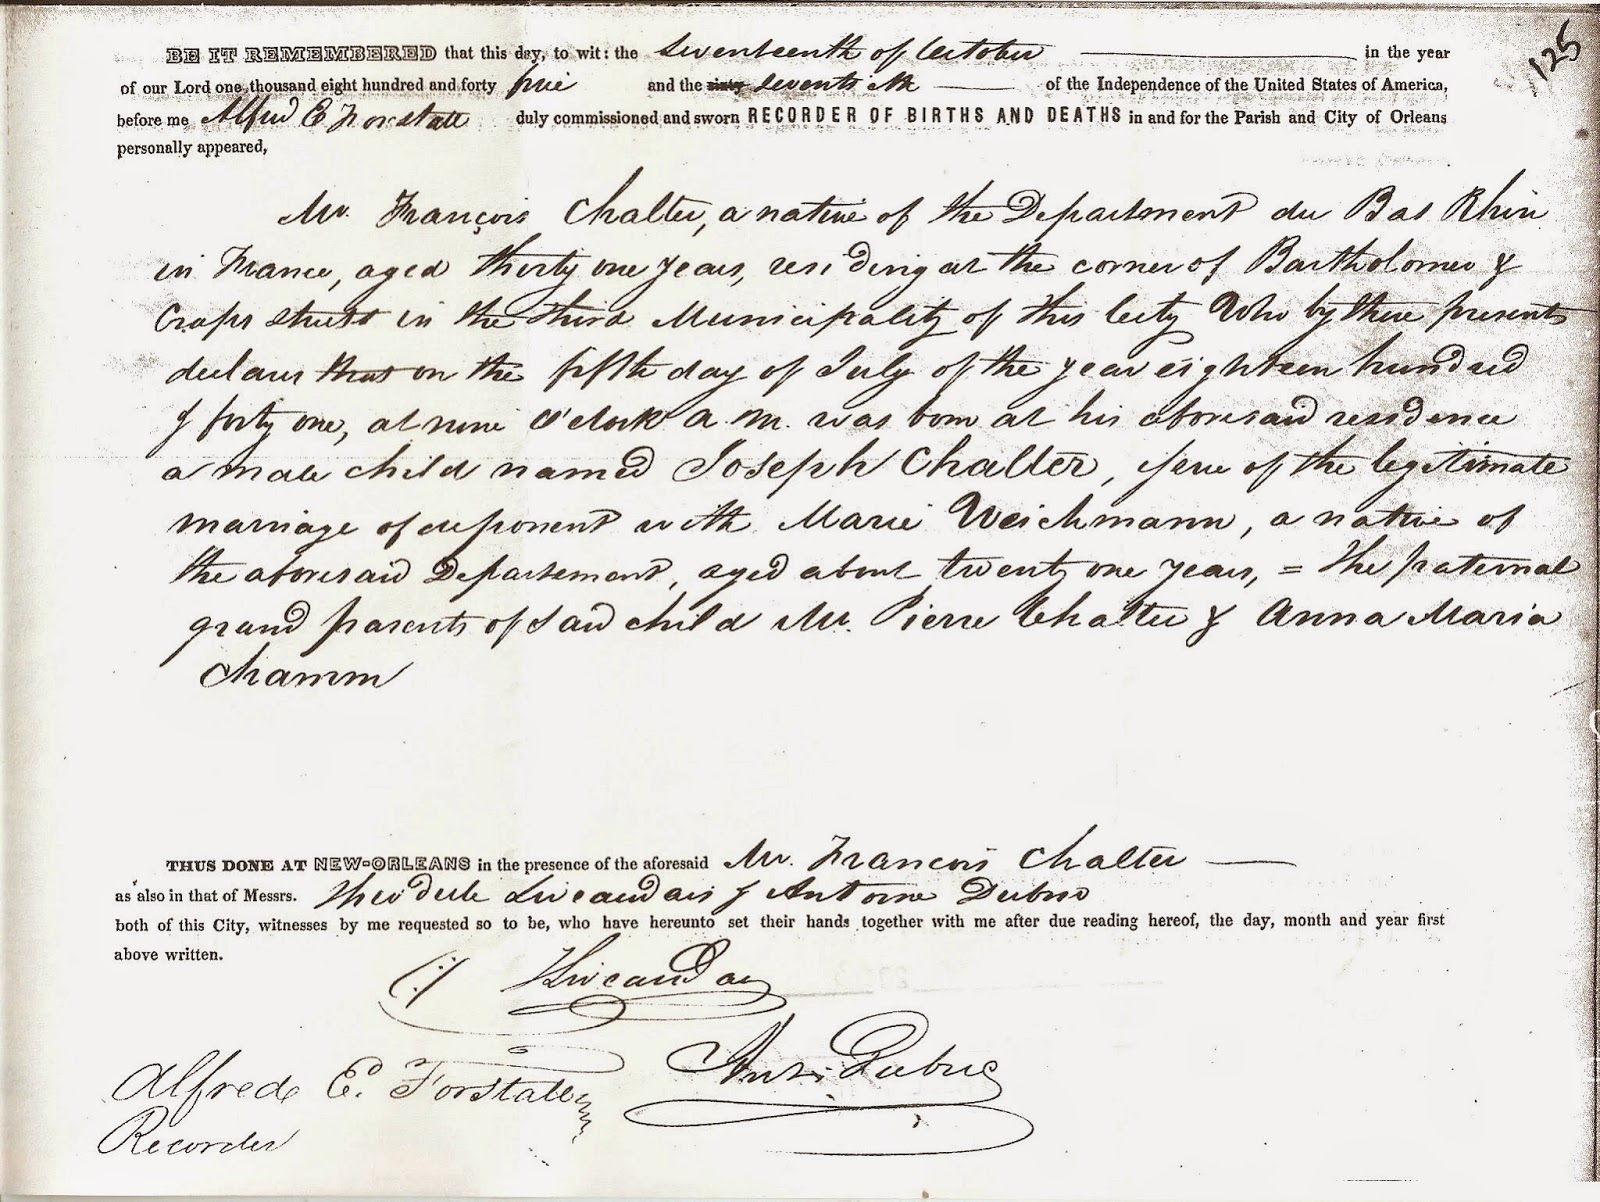 125
BE IT REMEMBERED that this day, to wit: the Seventeenth of October in the year
of our Lord one thousand eight hundred and forty five and the sixty seventieth of the Independence of the United States of America,
before me Alfred E Forstall duly commissioned and sworn RECORDER OF BIRTHS AND DEATHS in and for the Parish and City of Orleans
personally appeared,
Mr. François Chalter, a native of the Department du Bas Rhin
in France, aged thirty one years, residing at the corner of Bartholomew &
Craps streets in the third Municipality of this City Who by these presents
declares that on the fifth day of July of the year eighteen hundred
& forty one, at nine O'clock A. M. was born at his aforesaid residence
a male child named Joseph Chalter, issue of the legitimate
marriage of deponent with Marie Weichmann, a native of
the aforesaid Department, aged about twenty one years, = the paternal
grand parents of said child Mr. Pierre Chalter & Anna Maria
Chamm
THUS DONE AT NEW-ORLEANS in the presence of the aforesaid Mr. François Chalter
as also in that of Messrs. Antoine Dubuc
both of this City, witnesses by me requested so to be, who have hereunto set their hands together with me after due reading hereof, the day, month and year first
above written.
Ant. Dubuc
Alfred E. Forstall
Recorder